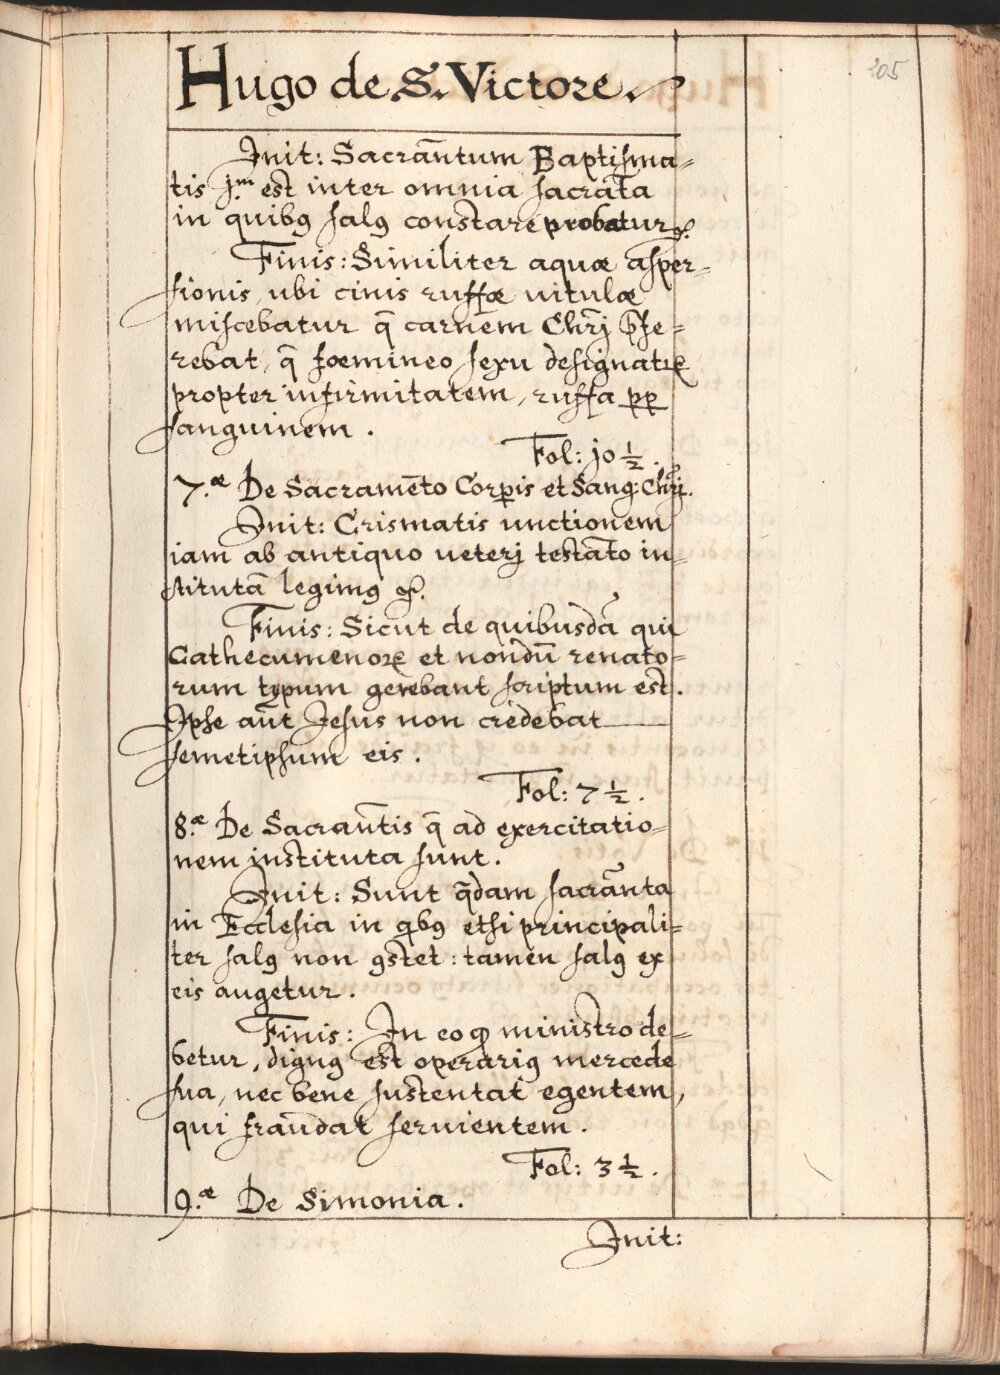 205
Hugo de S. Victore.
Init: Sacram̄tum Baptisma=
tis j.m est inter omnia sacram̄ta
in quibꝯ salꝯ constare probatur &.
Finis: Similiter aquæ asper=
sionis, ubi cinis ruffæ uitulæ
miscebatur q̄ carnem Chrī p̄fe=
rebat, q̄ foemineo sexu designatꝛ
propter infirmitatem, ruffa ꝓꝑ
sanguinem.
Fol: jo ½.
7.æ De Sacramēto Corꝑis et Sang: Chrj.
Init: Crismatis unctionem
iam ab antiquo ueterj testam̄to in=
stitutā legimꝯ &.
Finis: Sicut de quibusdā qui
Cathecumenoꝝ et nondū renato=
rum typum gerebant scriptum est.
Ipse aūt Jesus non credebat
semetipsum eis.
Fol: 7 ½.
8.æ De Sacram̄tis q̄ ad exercitatio=
nem instituta sunt.
Init: Sunt q̄dam sacram̄ta
in Ecclesia in qbꝯ etsi principali=
ter salꝯ non ꝯstet: tamen salꝯ ex
eis augetur.
Finis: In eo ꝙ ministro de=
betur, dignꝯ est operariꝯ mercede
sua, nec bene sustentat egentem,
qui fraudat seruientem.
Fol: 3 ½.
9.æ De Simonia.
Init: